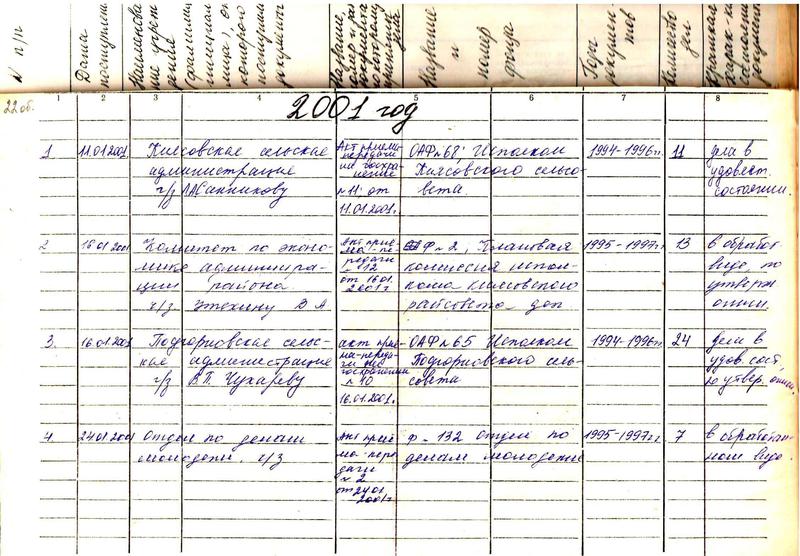 N п/п
Дата поступлен
Наименова
ние учреж
дения
(фамилия
лица), от
которого
поступили
документы
Название,
номер
Название
и
номер
фонда
Годы
докумен-
тов
Количество
дел
Краткая
харак-ка
состояния
документ
22 об.
1 2 3 4 5 6 7 8
2001 год
1 11.01.2001 Киясовская сельская администрация ч/з Санникову
Акт приема-передачи на госхранение N 11 от 11.01.2001г.
ОАФ N 68, Исполком Киясовского сельсовета.
1994-1996гг. 11 дела в удовлет. состоянии.
2 16.01.2001 Комитет по экономике администрации района ч/з Утехину В А
Акт приема-передачи N 12 от 16.01.2001г
Ф N 2, Плановая комиссия исполкома Киясовского райсовета деп
1995-1997гг. 13 в обработ виде, по утверж описи.
3. 16.01.2001 Подгорновская сельская администрация ч/з В.П. Чухареву
акт приема-передачи на госхранение N 10 16.01.2001г.
ОАФ N 65 Исполком Подгорновского сельсовета
1994-1996гг 24 дела в удов. сост, по утвер. описи.
4. 24.01.2001 Отдел по делам молодежи, ч/з
Акт приема-передачи N 2 от 24.01.2001г.
Ф-132 отдел по делам молодежи
1995-1997гг 7 в обработанном виде.